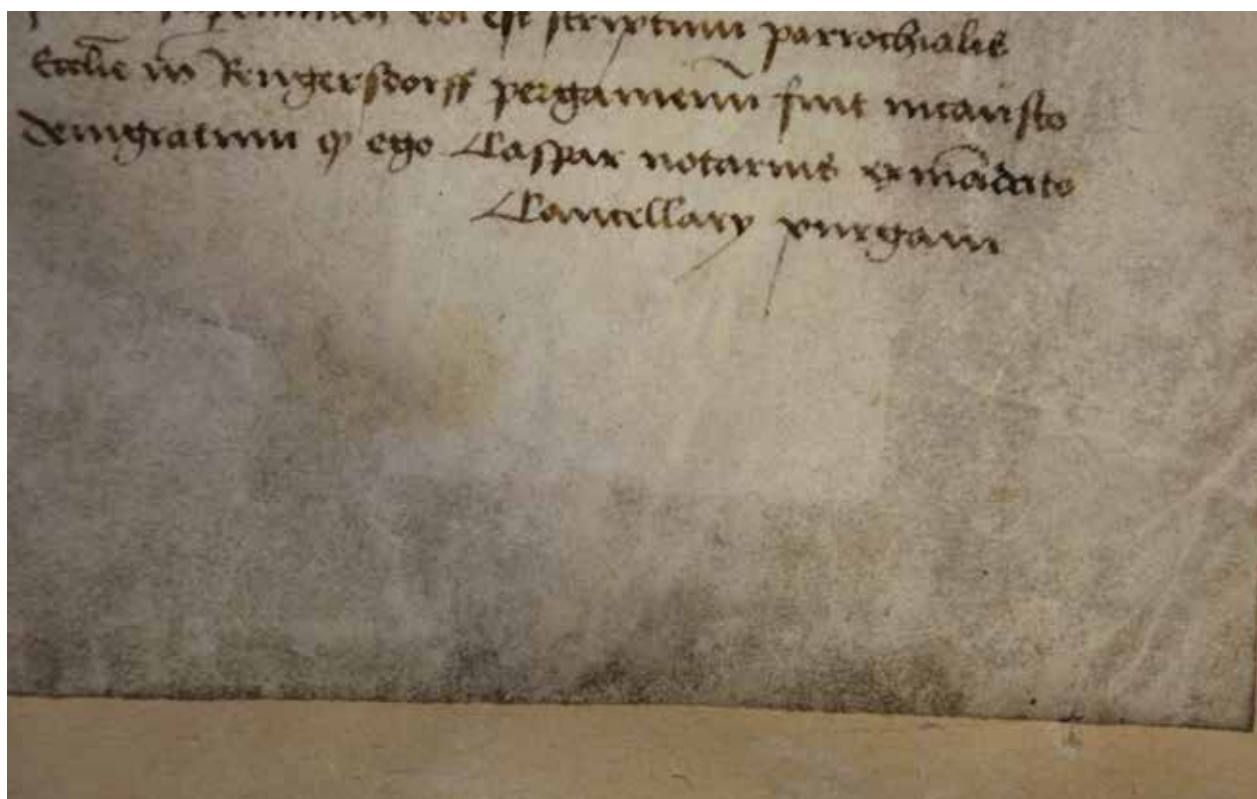 vbi est scriptum parrochialis
Ecclie in Rengersdorff pergamenum fuit incausto
denigratum q ego Caspar notarius ex mandato
Cancellary purgaui